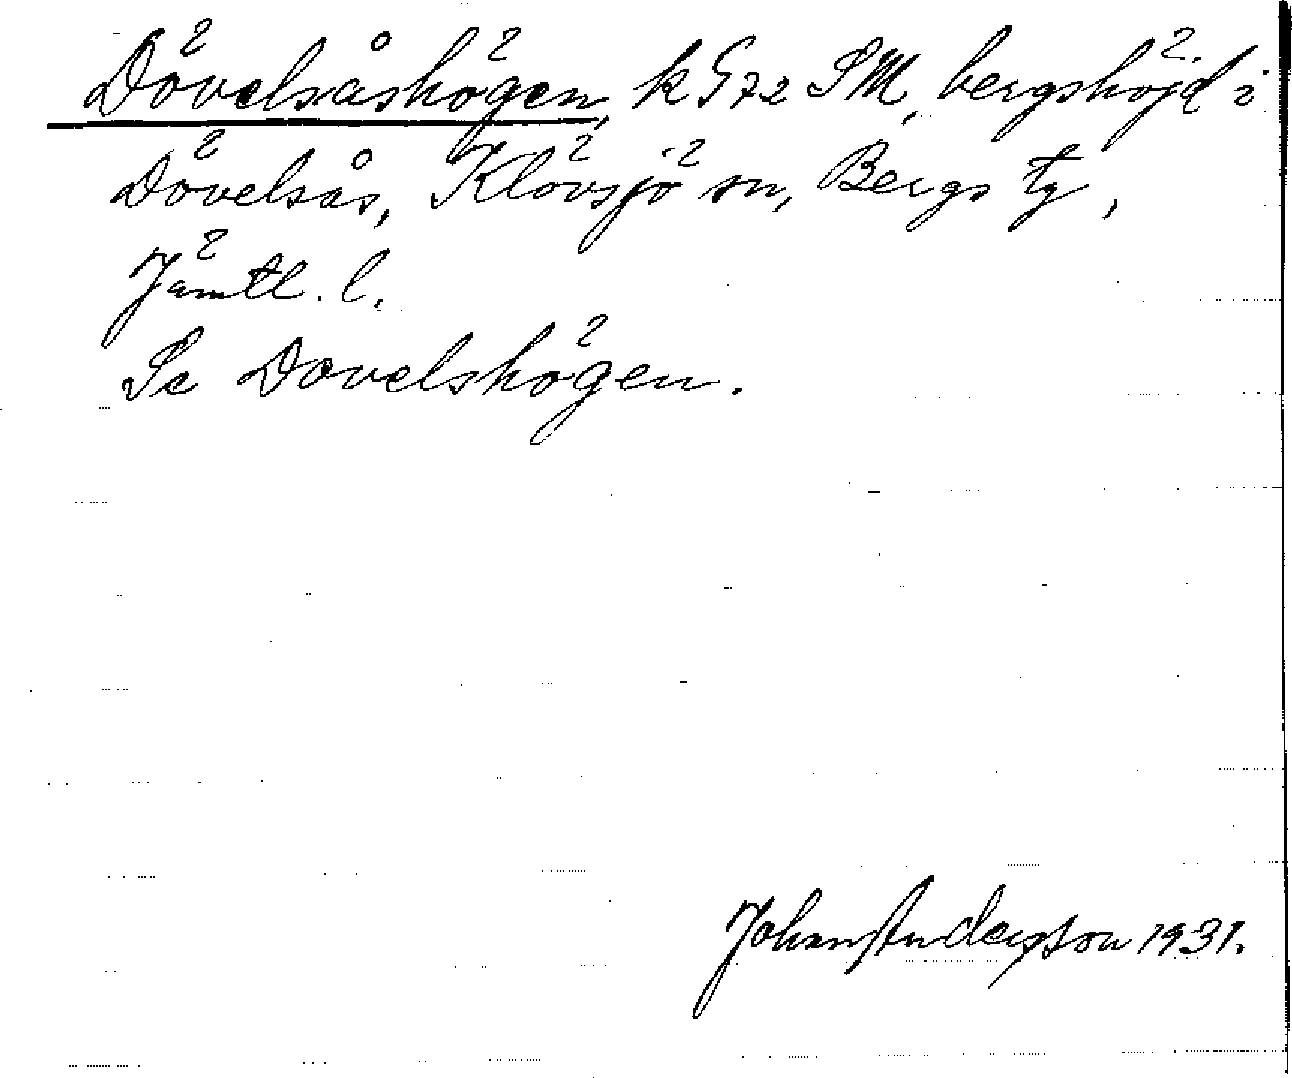 Dövelsåshögen, k G 72 SM, bergshöjd i
Dövelsås, Klövsjö sn, Bergs tg,
Jämtl. l.
Se Dovelshögen.
Johan Andersson 1931.